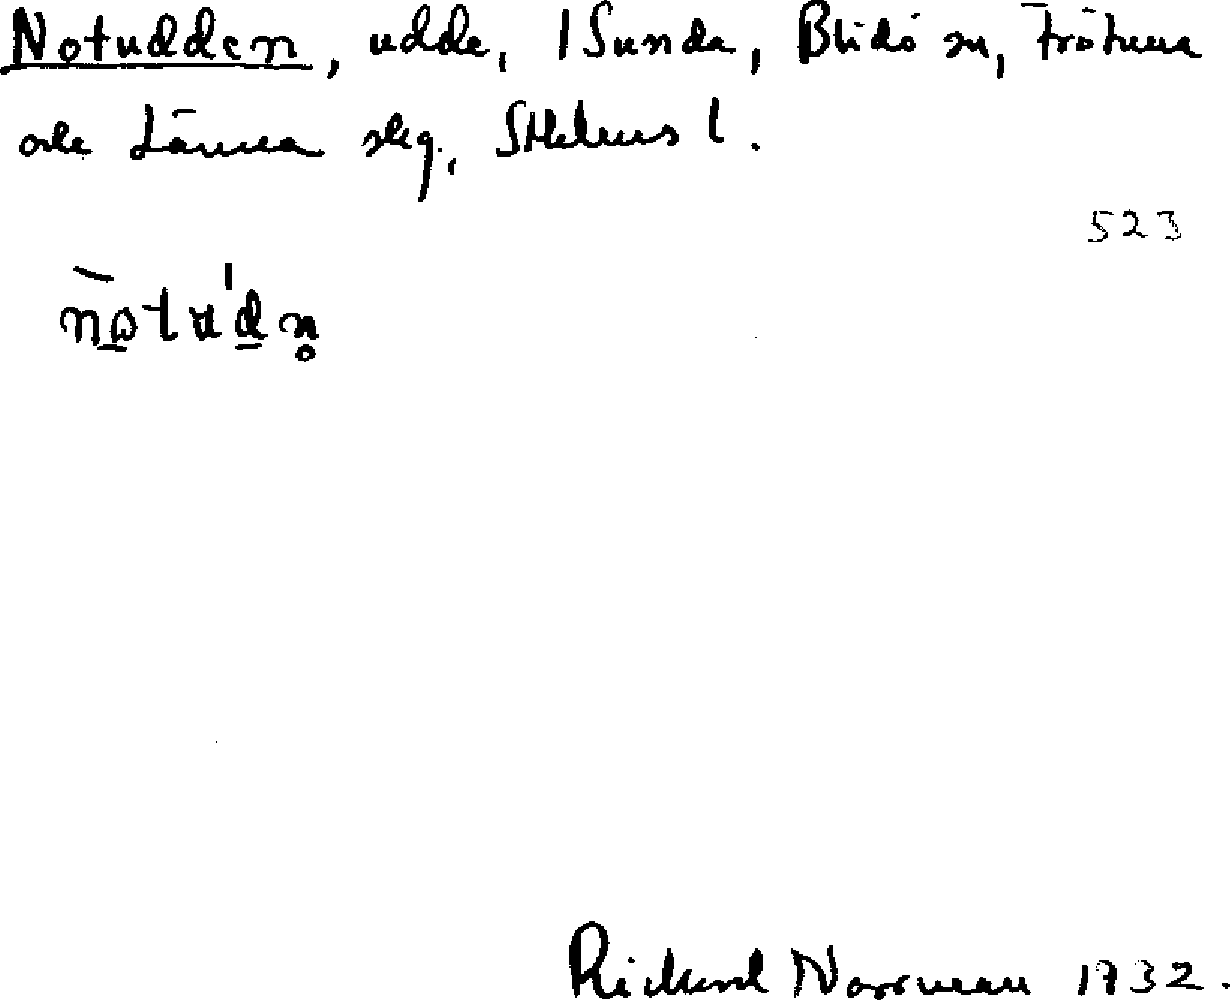 Notudden, udde, 1 Sunda, Blidö sn, Frötuna
och Länna skg, Sthlms l.
523
no̠tu'd̠n̥
Rickard Norrman 1932.